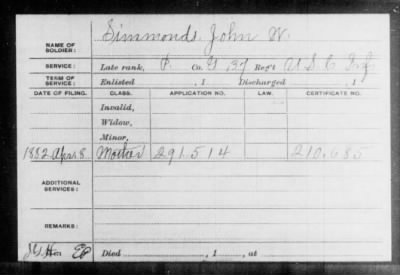 NAME OF SOLDIER: Simmonds, John W.
SERVICE: Late rank, P. Co. G 37 Reg't U.S.C. Inf
TERM OF SERVICE: Enlisted , 1 Discharged , 1
DATE OF FILING. CLASS. APPLICATION NO. LAW. CERTIFICATE NO.
Invalid,
Widow,
Minor,
1882 Apr. 8 Mother 291.514 210.685
ADDITIONAL SERVICES:
REMARKS:
Died , 1 , at